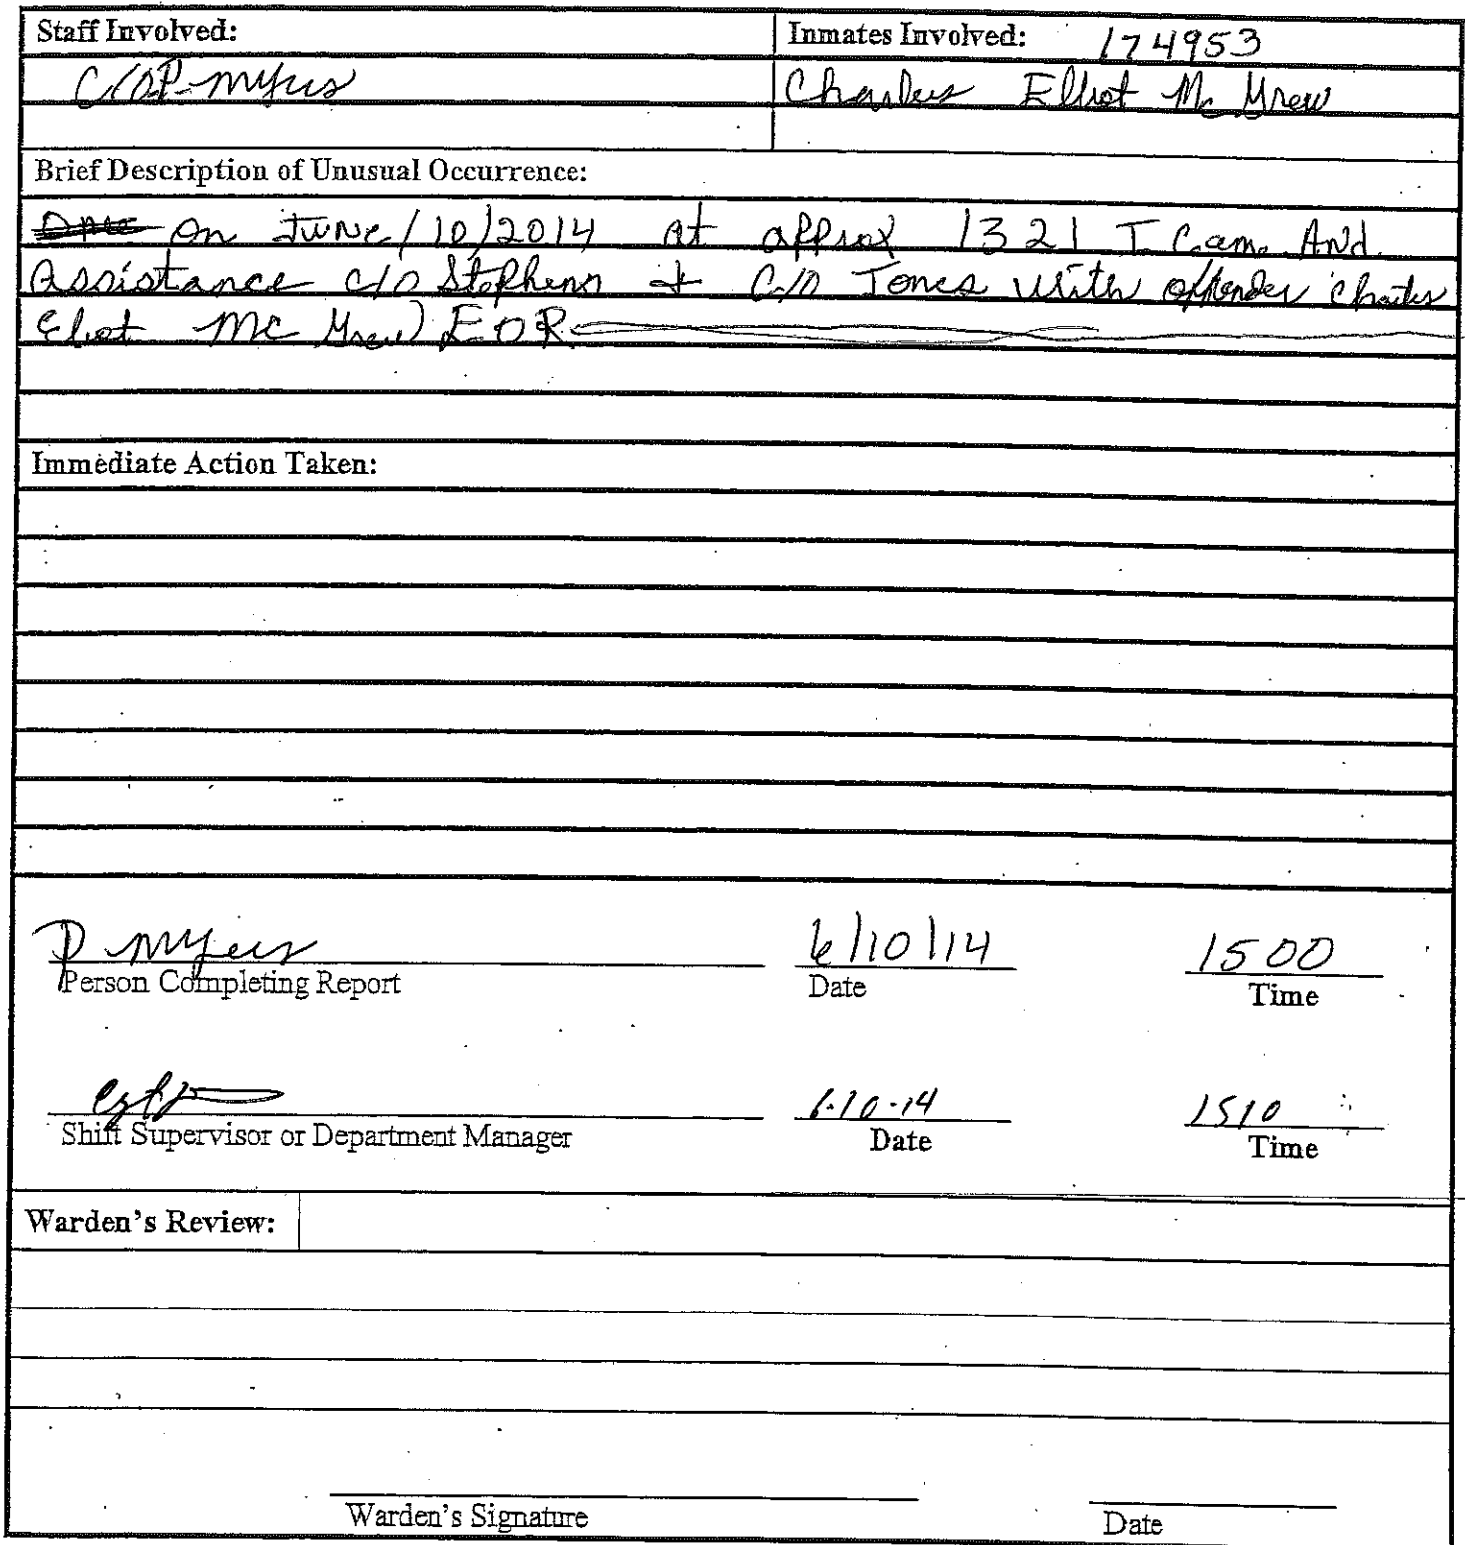 Staff Involved:
Inmates Involved: 174953
C/O P. Myers
Charles Elliot Mc Grew
Brief Description of Unusual Occurrence:
On June/10/2014 at approx 1321 I Came And
Assistance c/o Stephens + C/O Jones with offender Charles
Eliot Mc Grew EOR
Immediate Action Taken:
P Myers 6/10/14 1500
Person Completing Report Date Time
6-10-14 1510
Shift Supervisor or Department Manager Date Time
Warden's Review:
Warden's Signature Date